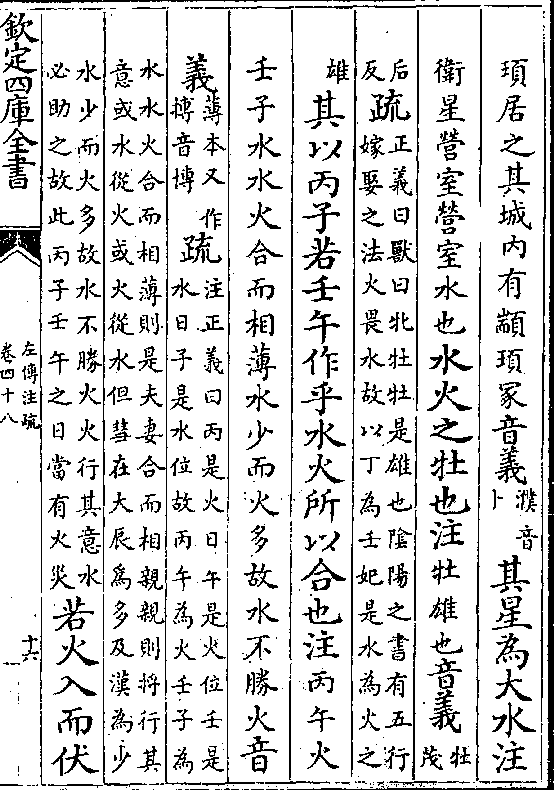 頊居之其城内有顓頊冢音義濮音
卜
其星為大水注
衛星營室營室水也水火之牡也注牡雄也音義牡
茂
后
反
疏正義曰獸曰牝牡牡是雄也陰陽之書有五行
嫁娶之法火畏水故以丁為壬妃是水為火之
雄
其以丙子若壬午作乎水火所以合也注丙午火
壬子水水火合而相薄水少而火多故水不勝火音
義薄本又作
摶音博
疏注正義曰丙是火日午是火位壬是
水日子是水位故丙午為火壬子為
水水火合而相薄則是夫妻合而相親親則將行其
意或水從火或火從水但彗在大辰為多及漢為少
水少而火多故水不勝火火行其意水
必助之故此丙子壬午之日當有火災
若火入而伏
欽定四庫全書
左傳注疏
卷四十八
十六